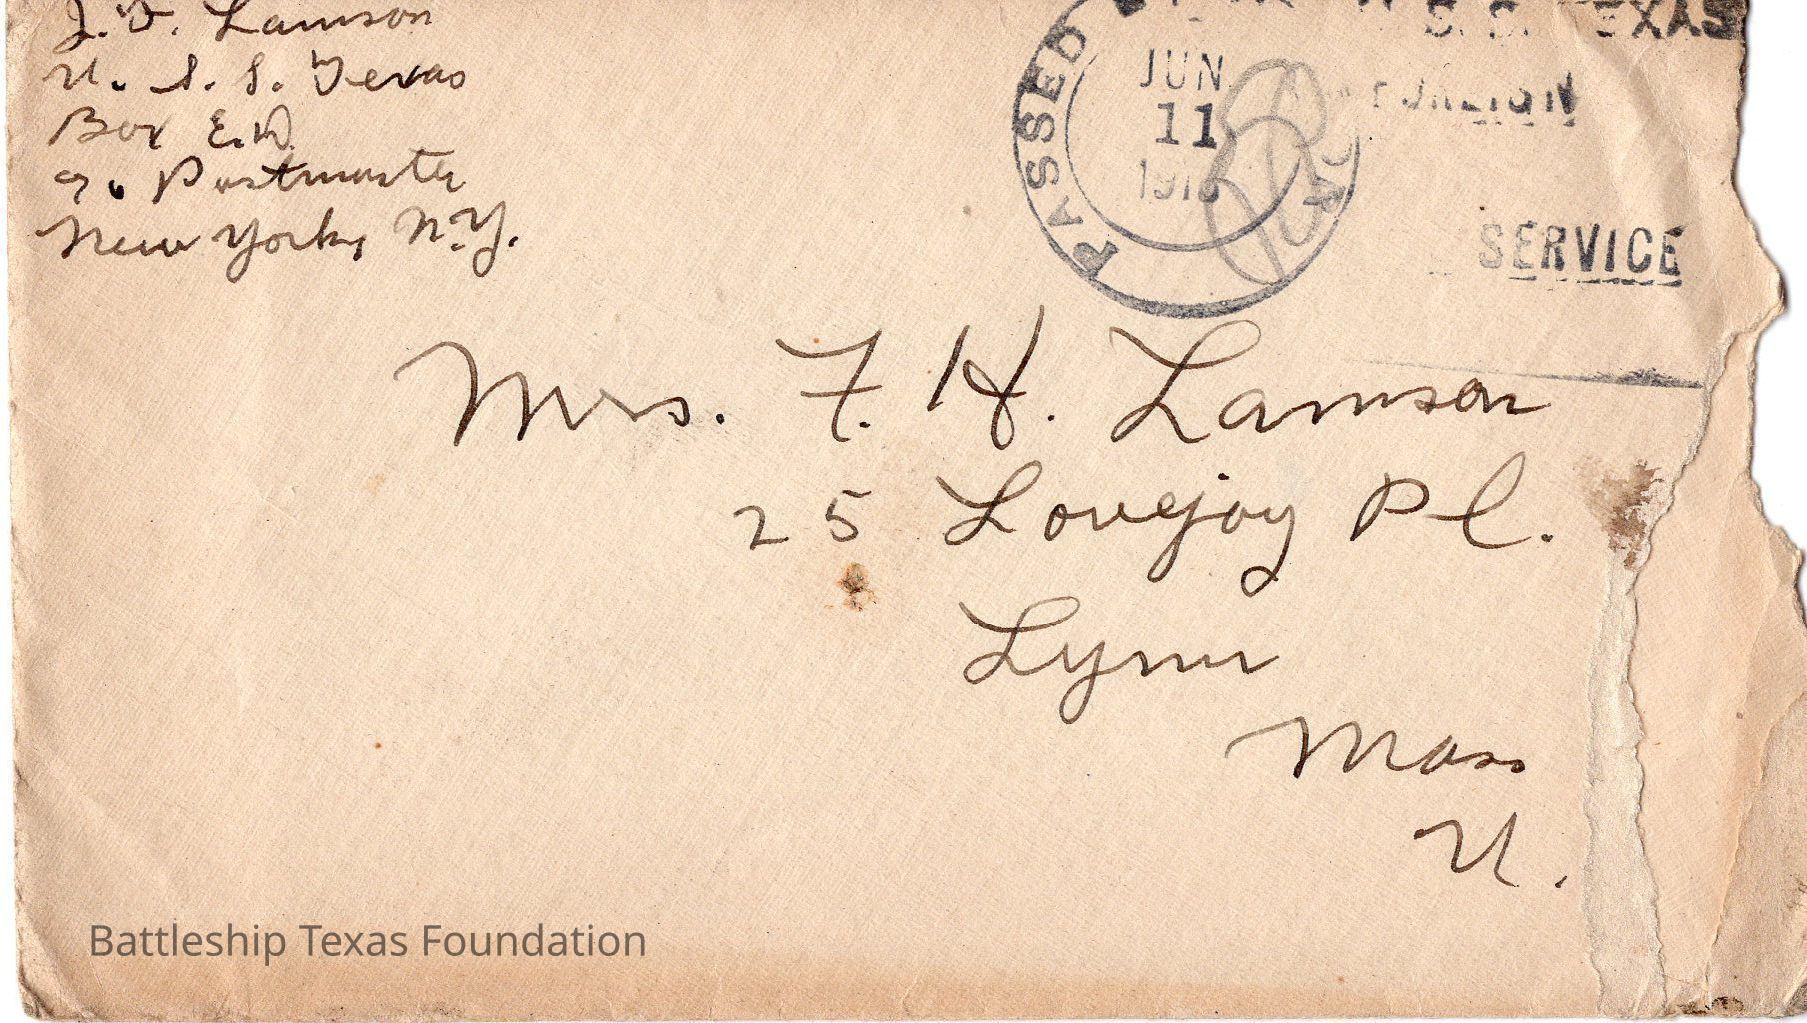 J. D. Lamson
U. S. S. Texas
Box E.D.
c/o Postmaster
New York, N.Y.
PASSED
JUN
11
1918
S. S. TEXAS
FOREIGN
SERVICE
Mrs. F. H. Lamson
25 Lovejoy Pl.
Lynn
Mass
U.
Battleship Texas Foundation